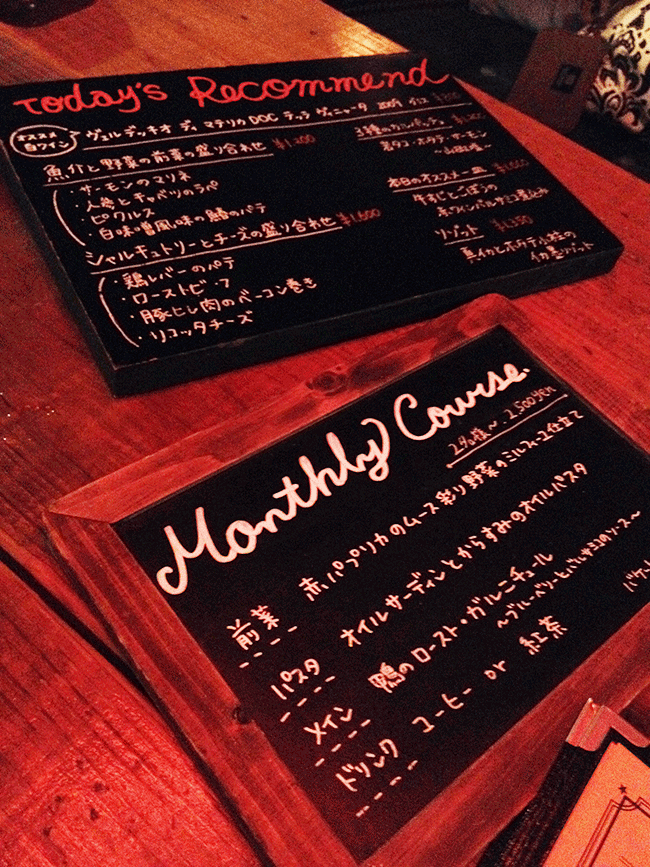 Today's Recommend
オススメ
白ワイン
ヴェルディッキオ ディ マテリカ DOC テッラ ヴィニャータ 2009 グラス
魚介と野菜の前菜の盛り合わせ ¥1,200
・サーモンのマリネ
・人参とキャベツのラペ
・ピクルス
・白味噌風味の鯖のパテ
シャルキュトリーとチーズの盛り合わせ ¥1,600
・鶏レバーのパテ
・ローストビーフ
・豚ヒレ肉のベーコン巻き
・リコッタチーズ
3種のカルパッチョ
岩タコ・ホタテ・サーモン
本日のオススメ一皿
牛すじとごぼうの
赤ワインバルサミコ煮込み
リゾット ¥1,350
真イカとホタテ小柱の
イカ墨リゾット
Monthly Course.
2名様〜 2,500yen
前菜 赤パプリカのムース 彩り野菜のミルフィーユ仕立て
パスタ オイルサーディンとからすみのオイルパスタ
メイン 鴨のロースト・ガルニチュール
〜ブルーベリーとバルサミコのソース〜
ドリンク コーヒー or 紅茶